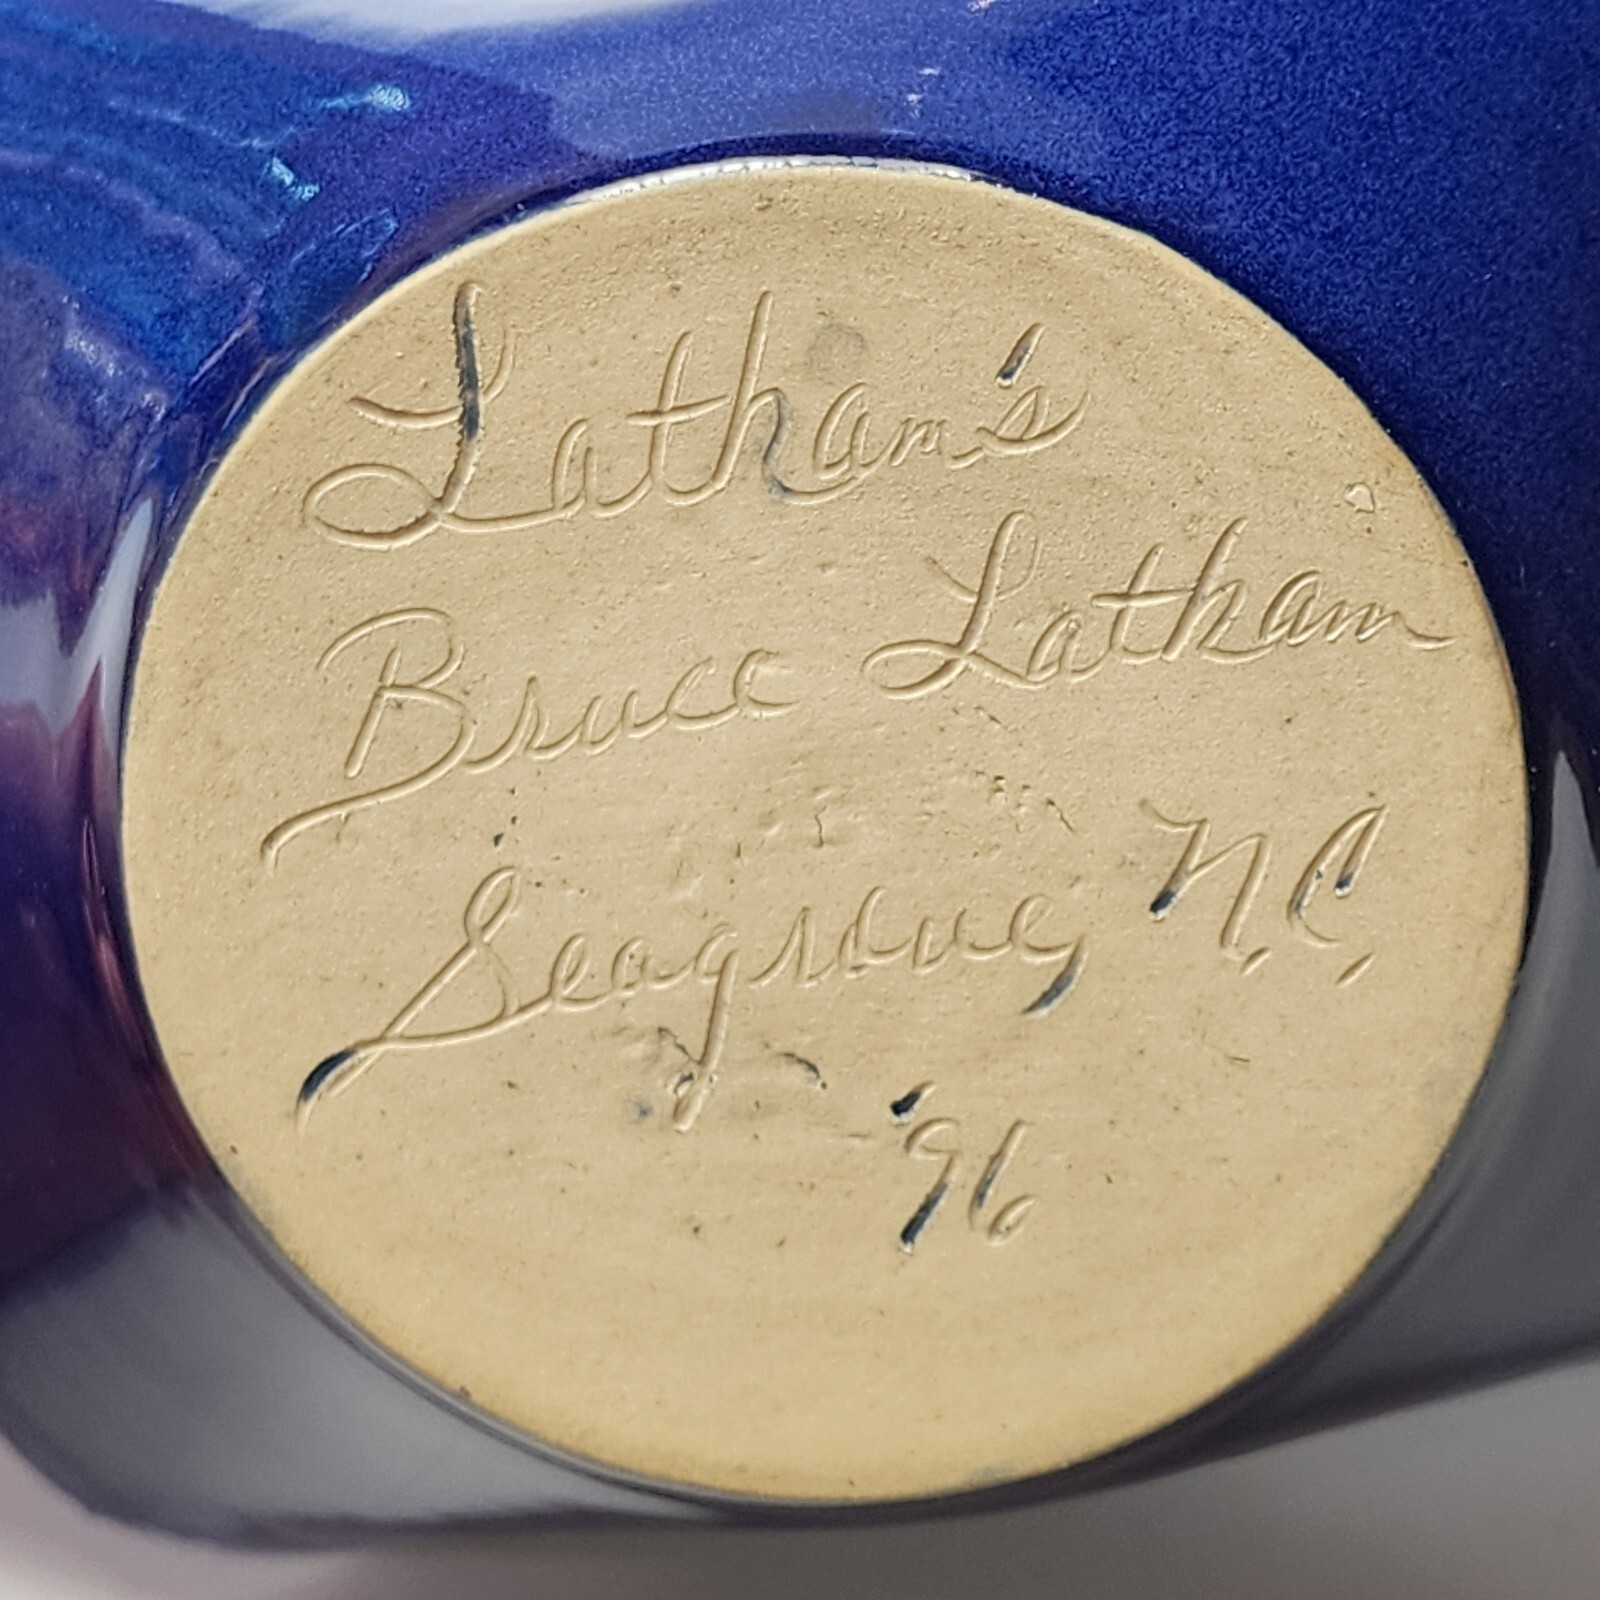 Latham's
Bruce Latham
Seagrove, N.C.
'96